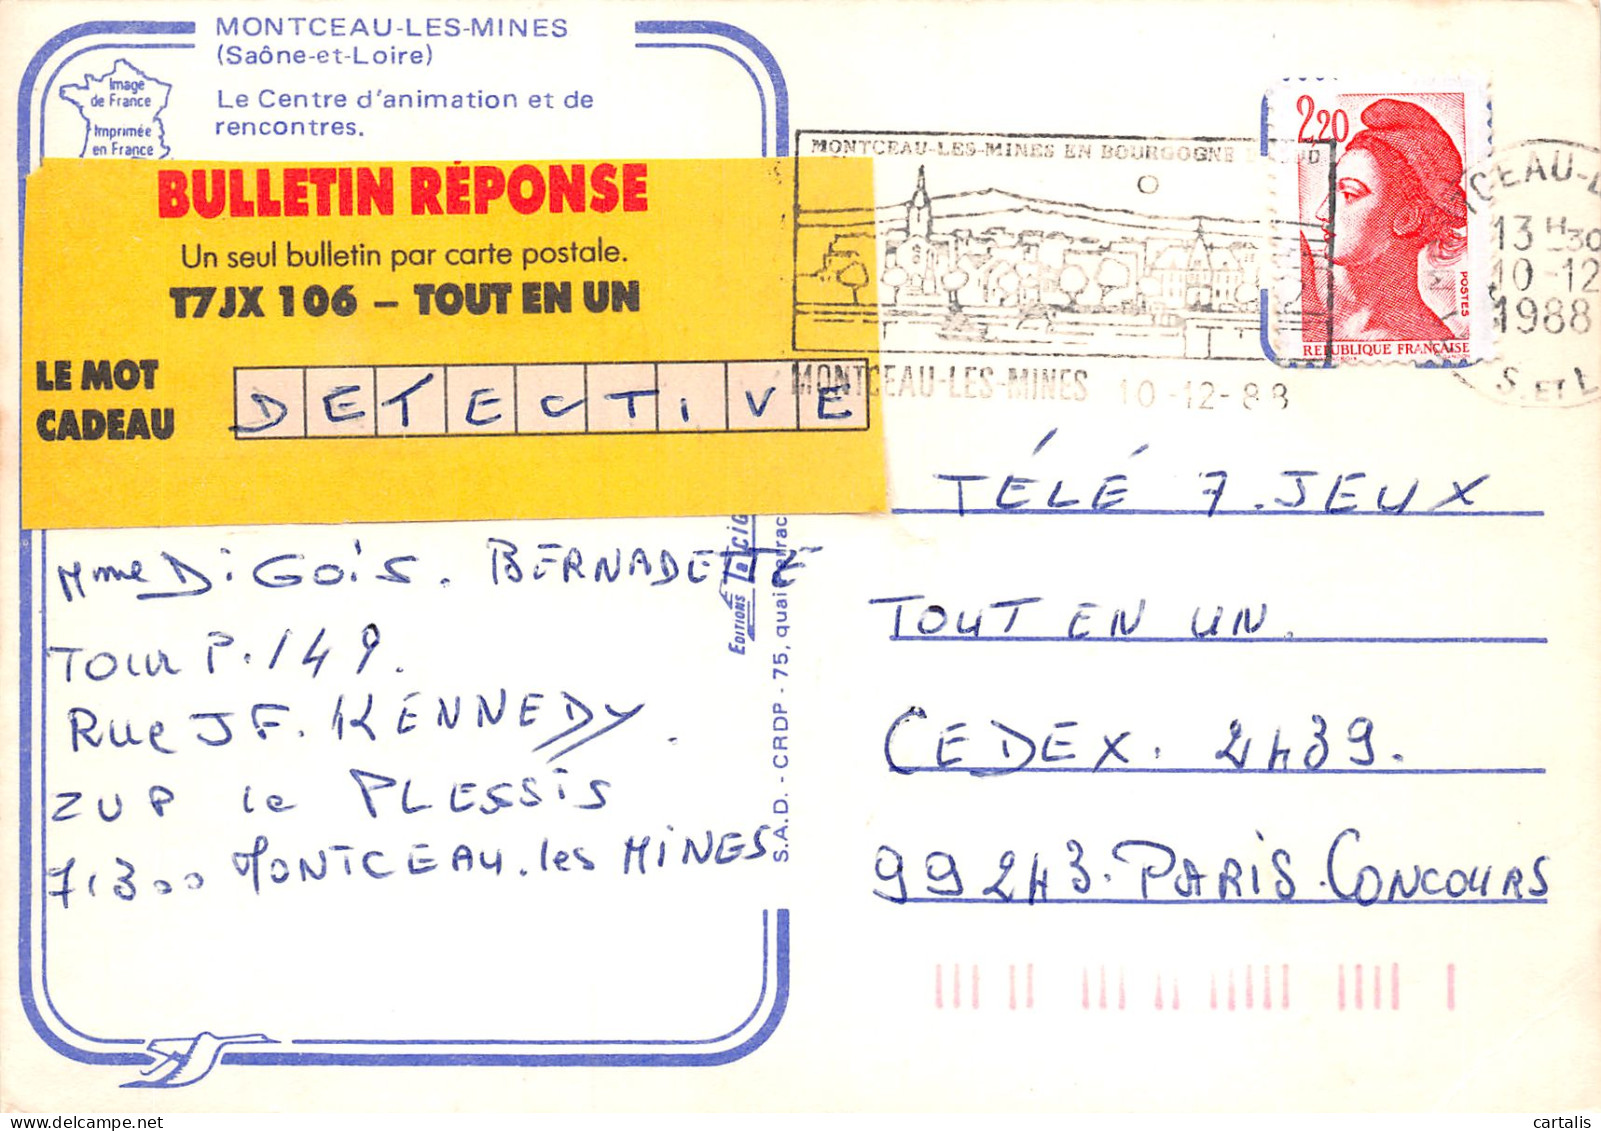 MONTCEAU-LES-MINES
(Saône-et-Loire)
Le Centre d'animation et de
rencontres.
Image
de France
Imprimée
en France
BULLETIN RÉPONSE
Un seul bulletin par carte postale.
T7JX 106 – TOUT EN UN
LE MOT
CADEAU
DETECTIVE
MONTCEAU-LES-MINES EN BOURGOGNE
MONTCEAU-LES-MINES 10-12-88
2,20
POSTES
REPUBLIQUE FRANÇAISE
CEAU-L
13 H30
10-12
1988
S. ET L
Mme DiGOiS. BERNADETTE
TOUR P.149.
Rue JF. KENNEDY.
ZUP le PLESSiS
71300 MONTCEAU.les MINES
EDITIONS
S.A.D. - CRDP - 75, quai
TÉLÉ 7.JEUX
TOUT EN UN.
CEDEX. 2439.
99243.PARiS.CONCOURS
cartalis